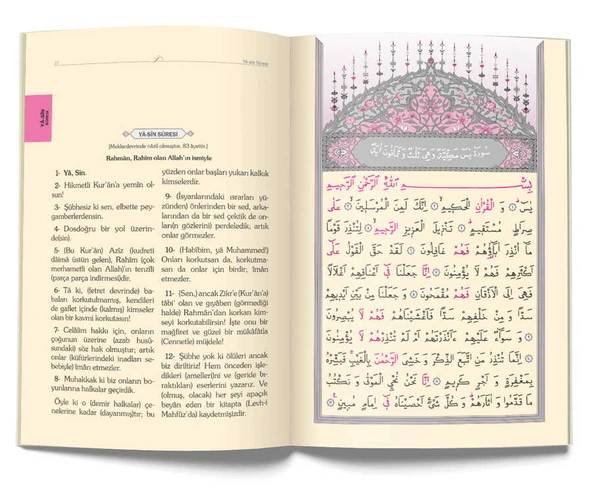 Yâ-sîn Sûresi
YÂ-SÎN
SÛRESİ
YÂ-SÎN SÛRESİ
[Mekke devrinde nâzil olmuştur, 83 âyettir.]
Rahmân, Rahîm olan Allah'ın ismiyle
1- Yâ, Sîn.
2- Hikmetli Kur'ân'a yemîn ol-
sun!
3- Şübhesiz ki sen, elbette pey-
gamberlerdensin.
4- Dosdoğru bir yol üzerin-
de(sin).
5- (Bu Kur'ân) Azîz (kudreti
dâimâ üstün gelen), Rahîm (çok
merhametli olan Allah)'ın tenzîli
(parça parça indirmesi)dir.
6- Tâ ki, (fetret devrinde) ba-
baları korkutulmamış, kendileri
de gaflet içinde (kalmış) kimseler
olan bir kavmi korkutasın!
7- Celâlim hakkı için, onların
çoğunun üzerine (azab husû-
sundaki) söz hak olmuştur; artık
onlar (küfürlerindeki inadları se-
bebiyle) îmân etmezler.
8- Muhakkak ki biz onların bo-
yunlarına halkalar geçirdik.
Öyle ki o (demir halkalar) çe-
nelerine kadar (dayanmış)tır; bu
yüzden onlar başları yukarı kalkık
kimselerdir.
9- (İsyanlarındaki ısrarları yü-
zünden) önlerinden bir sed, arka-
larından da bir sed çektik de on-
ların gözlerini) perdeledik, artık
onlar görmezler.
10- (Habîbim, yâ Muhammed!)
Onları korkutsan da, korkutma-
san da onlar için birdir; îmân
etmezler.
11- (Sen,) ancak Zikr'e (Kur'ân'a)
tâbi' olan ve gıyâben (görmediği
halde) Rahmân'dan korkan kim-
seyi korkutabilirsin! İşte onu bir
mağfiret ve güzel bir mükâfâtla
(Cennetle) müjdele!
12- Şübhe yok ki ölüleri ancak
biz diriltiriz! Hem önceden işle-
dikleri (amelleri)ni ve (geride bı-
raktıkları) eserlerini yazarız. Ve
(olmuş, olacak) her şeyi apaçık
beyân eden bir kitapta (Levh-i
Mahfûz'da) kaydetmişizdir.
سُورَةُ يٰسٓ مَكِّيَّةٌ وَهِيَ ثَلَاثٌ وَثَمَانُونَ اٰيَةً
بِسْمِ اللّٰهِ الرَّحْمٰنِ الرَّحِيمِ
يٰسٓ ۞ وَ الْقُرْاٰنِ الْحَكِيمِ ۞ اِنَّكَ لَمِنَ الْمُرْسَلِينَ ۞ عَلٰى
صِرَاطٍ مُسْتَقِيمٍ ۞ تَنْزِيلَ الْعَزِيزِ الرَّحِيمِ ۞ لِتُنْذِرَ قَوْمًا
مَٓا اُنْذِرَ اٰبَٓاؤُهُمْ فَهُمْ غَافِلُونَ ۞ لَقَدْ حَقَّ الْقَوْلُ عَلٰٓى
اَكْثَرِهِمْ فَهُمْ لَا يُؤْمِنُونَ ۞ اِنَّا جَعَلْنَا فِٓى اَعْنَاقِهِمْ اَغْلَالًا
فَهِىَ اِلَى الْاَذْقَانِ فَهُمْ مُقْمَحُونَ ۞ وَ جَعَلْنَا مِنْ بَيْنِ اَيْدِيهِمْ
سَدًّا وَ مِنْ خَلْفِهِمْ سَدًّا فَاَغْشَيْنَاهُمْ فَهُمْ لَا يُبْصِرُونَ
۞ وَ سَوَٓاءٌ عَلَيْهِمْ ءَاَنْذَرْتَهُمْ اَمْ لَمْ تُنْذِرْهُمْ لَا يُؤْمِنُونَ
۞ اِنَّمَا تُنْذِرُ مَنِ اتَّبَعَ الذِّكْرَ وَ خَشِىَ الرَّحْمٰنَ بِالْغَيْبِ فَبَشِّرْهُ
بِمَغْفِرَةٍ وَ اَجْرٍ كَرِيمٍ ۞ اِنَّا نَحْنُ نُحْيِ الْمَوْتٰى وَ نَكْتُبُ
مَا قَدَّمُوا وَ اٰثَارَهُمْ وَ كُلَّ شَىْءٍ اَحْصَيْنَاهُ فِٓى اِمَامٍ مُبِينٍ ۞